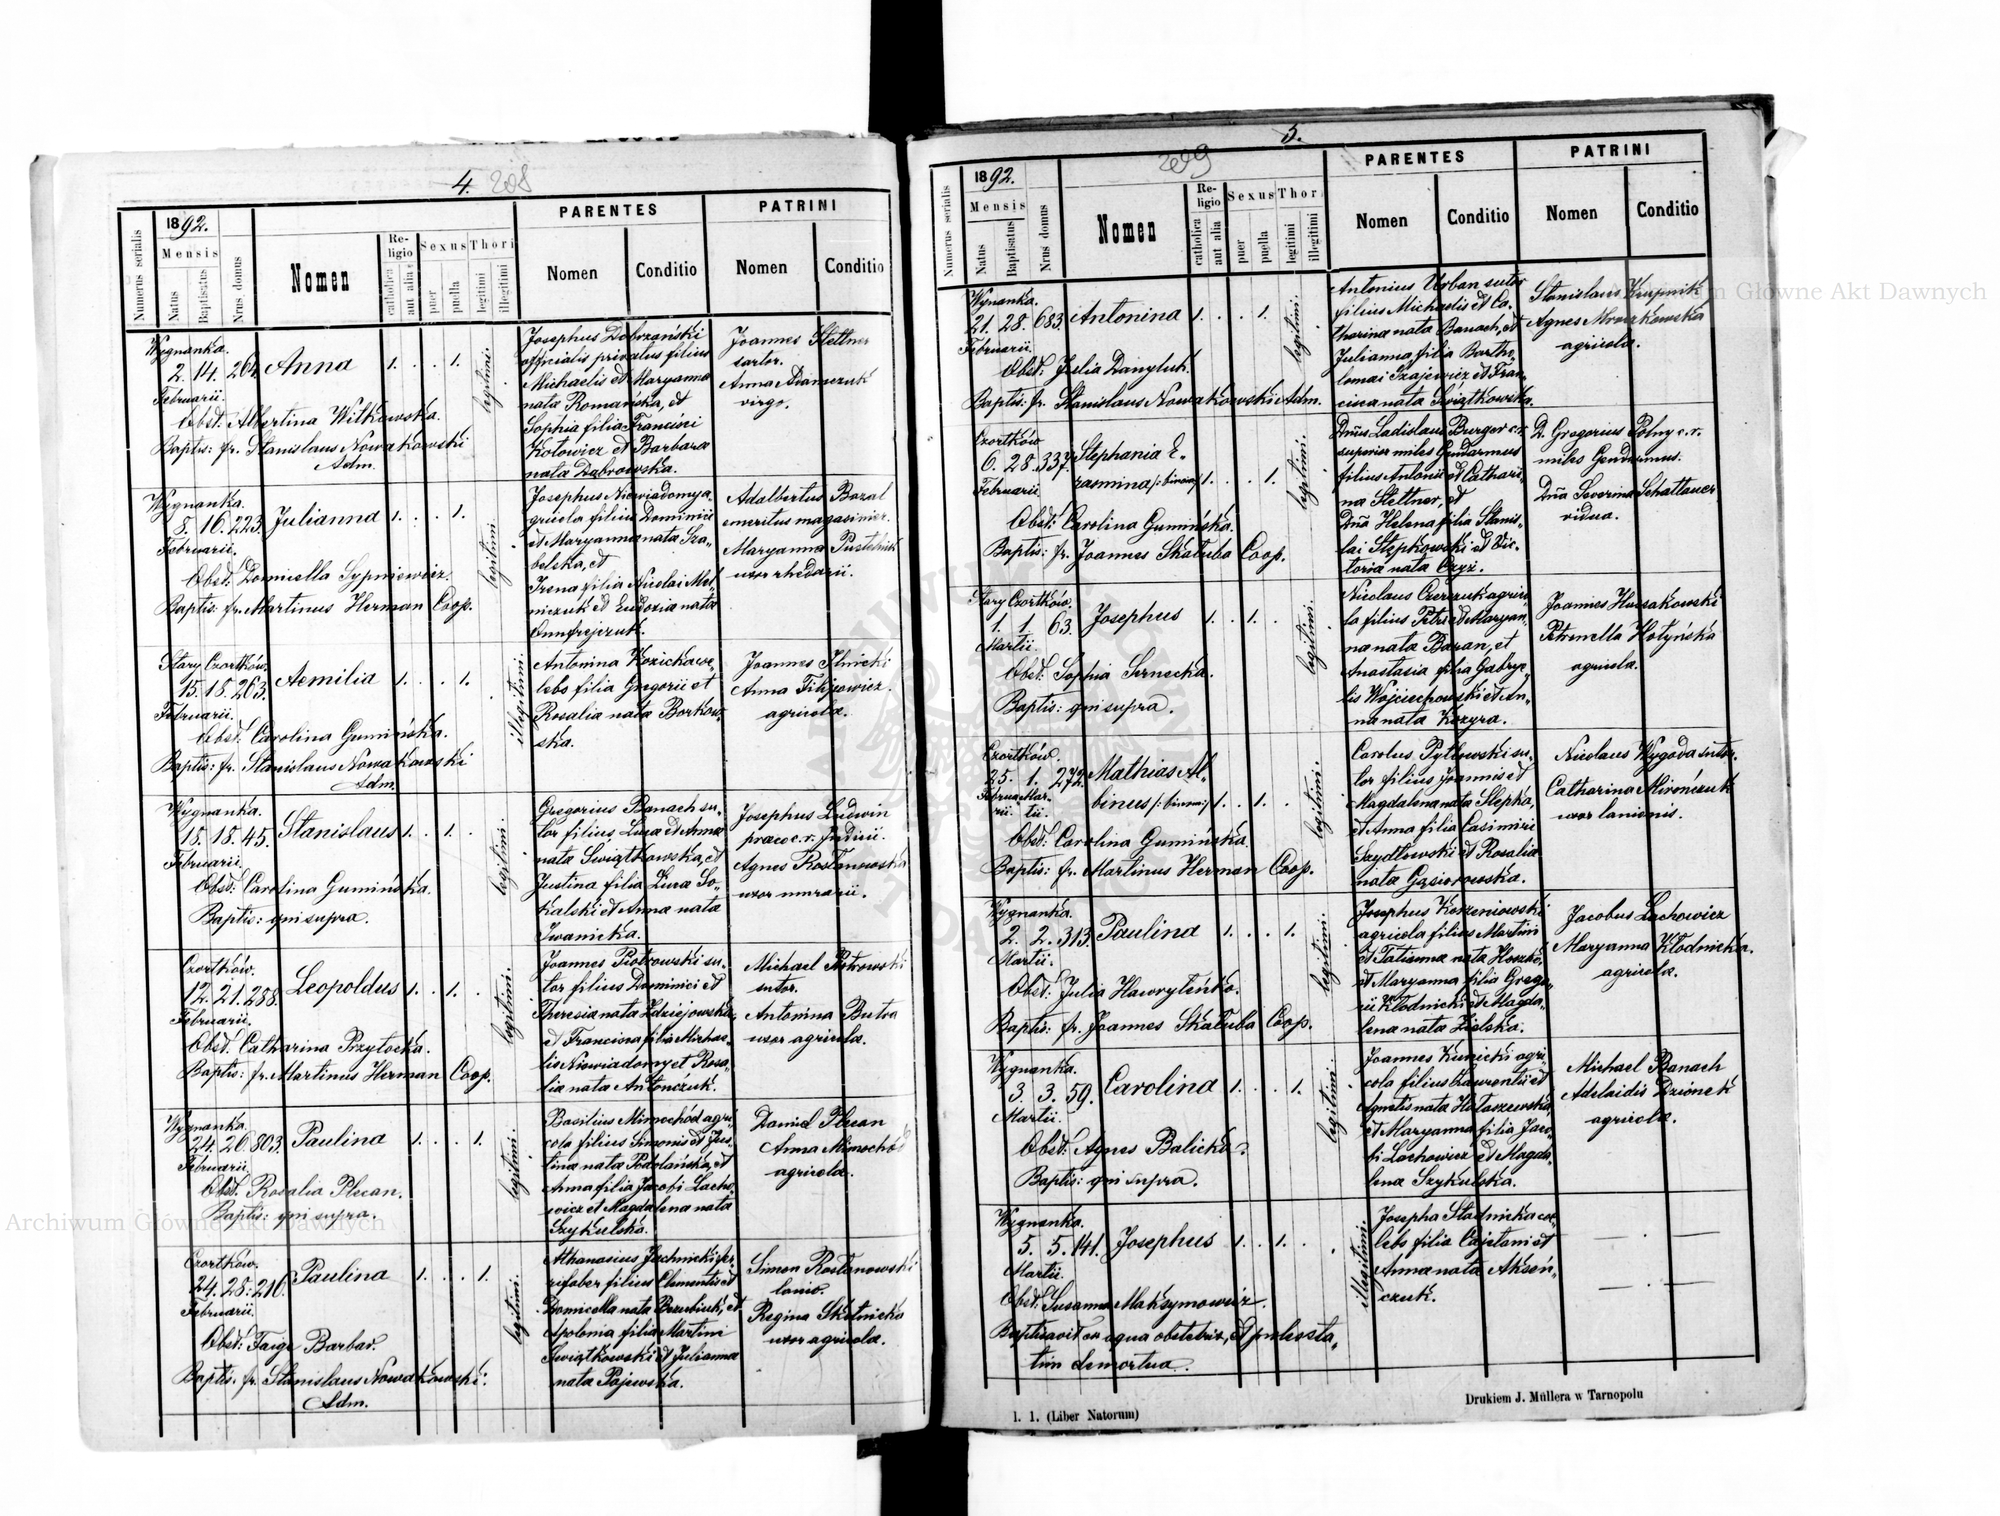 4. 208
1892.
Numerus serialis
Mensis
Natus
Baptisatus
Nrus domus
Nomen
Religio
catholica
aut alia
Sexus
puer
puella
Thori
legitimi
illegitimi
PARENTES
Nomen
Conditio
PATRINI
Nomen
Conditio
Wygnanka.
2. 14. 264. Anna 1. . . 1. legitimi.
Februarii.
Obst. Albertina Witkowska.
Baptis: fr. Stanislaus Nowakowski
Adm.
Josephus Dobrzański
officialis privatus filius
Michaelis et Maryanna
nata Romańska, et
Sophia filia Francisci
Kotowicz et Barbara
nata Dąbrowska.
Joannes Stettner
sartor.
Anna Adamczuk
virgo.
Wygnanka.
8. 16. 223. Julianna 1. . . 1. legitimi.
Februarii.
Obst. Domicella Sypniewicz.
Baptis: fr. Martinus Herman Coop.
Josephus Niewiadomy a
gricola filius Dominici
et Maryanna nata Sza-
belska, et
Irena filia Nicolai Mel
niczuk et Eudoxia nata
Onufrejczuk.
Adalbertus Bazal
emeritus magasinier.
Maryanna Pustelnik
uxor rhedarii.
Stary Czortków.
15. 18. 263. Aemilia 1. . . 1. illegitimi.
Februarii.
Obst. Carolina Gumińska.
Baptis: fr. Stanislaus Nowakowski
Adm.
Antonina Kozicka cae
lebs filia Gregorii et
Rosalia nata Borkow-
ska.
Joannes Ilnicki
Anna Filipowicz.
agricolae.
Wygnanka.
18. 18. 45. Stanislaus 1. . 1. legitimi.
Februarii.
Obst: Carolina Gumińska.
Baptis: qui supra.
Gregorius Banach su-
tor filius Luca et Anna
nata Swiątkowska, et
Justina filia Luca So-
kalski et Anna nata
Iwanicka.
Josephus Ludwin
praeco c. r. Judicii.
Agnes Rostanowska
uxor murarii.
Czortków.
12. 21. 288. Leopoldus 1. . 1. legitimi.
Februarii.
Obst. Catharina Przytocka.
Baptis: fr. Martinus Herman Coop.
Joannes Piotrowski su-
tor filius Dominici et
Theresia nata Hdziejowska,
et Francisca filia Michae-
lis Niewiadomy et Rosa-
lia nata Antonczuk.
Michael Piotrowski
sutor.
Antonina Butra
uxor agricolae.
Wygnanka.
24. 26. 803. Paulina 1. . . 1. legitimi.
Februarii.
Obst. Rosalia Plecan.
Baptis: qui supra.
Basilius Mimochód agri-
cola filius Simonis et Jus-
tina nata Podolańska, et
Anna filia Jacobi Lacho-
wicz et Magdalena nata
Szykulska.
Daniel Plecan
Anna Mimochód
agricolae.
Czortków.
24. 28. 216. Paulina 1. . . 1. legitimi.
Februarii.
Obst: Faige Barbar.
Baptis. fr. Stanislaus Nowakowski.
Adm.
Athanasius Juchnicki fer-
rifaber filius Clementis et
Domicella nata Bezubiuk, et
Apolonia filia Martini
Swiątkowski et Julianna
nata Pajewska.
Simon Rostanowski
lanio.
Regina Skotnicka
uxor agricolae.
5.
209
1892.
Numerus serialis
Mensis
Natus
Baptisatus
Nrus domus
Nomen
Religio
catholica
aut alia
Sexus
puer
puella
Thori
legitimi
illegitimi
PARENTES
Nomen
Conditio
PATRINI
Nomen
Conditio
Wygnanka.
21. 28. 683. Antonina 1. . . 1. legitimi.
Februarii.
Obst: Julia Danyluk.
Baptis: fr. Stanislaus Nowakowski Adm.
Antonius Urban sutor
filius Michaelis et Ca-
tharina nata Banach, et
Julianna filia Bartho-
lomai Szajewicz et Fran-
cisca nata Świątkowska.
Stanislaus Krupnik
Agnes Mroczkowska
agricolae.
Czortków
6. 28. 337. Stephania E-
razmina /: binom:/ 1. . . 1. legitimi.
Februarii.
Obst: Carolina Gumińska.
Baptis: fr. Joannes Skałuba Coop.
Dnus Ladislaus Burger c. r.
superior miles Gendarmus
filius Antonii et Cathari-
na Stettner, et
Dna Helena filia Stanis-
lai Stępkowski et Vic-
toria nata Czyż.
D. Gregorius Polny c. r.
miles Gendarmus.
Dna Severina Schattauer
vidua.
Stary Czortków.
1. 1. 63. Josephus 1. . 1. . legitimi.
Martii.
Obst: Sophia Sernecka.
Baptis: qui supra.
Nicolaus Czerczuk agrico
la filius Petri et Maryan-
na nata Baran, et
Anastasia filia Gabrye-
lis Wojciechowski et An-
na nata Kozyra.
Joannes Hussakowski
Petronella Hołyńska
agricolae.
Czortków.
25. 1. 272. Mathias Al-
Februarii. Martii. binus /: binom:/ 1. . 1. . legitimi.
Obst: Carolina Gumińska.
Baptis: fr. Martinus Herman Coop.
Carolus Pytlowski su-
tor filius Joannis et
Magdalena nata Slepka,
et Anna filia Casimiri
Szydłowski et Rosalia
nata Gąsiorowska.
Nicolaus Wygoda sutor.
Catharina Mirończuk
uxor lanionis.
Wygnanka.
2. 2. 313. Paulina 1. . . 1. legitimi.
Martii.
Obst: Julia Hawryleńko.
Baptis: fr. Joannes Skałuba Coop.
Josephus Korzeniowski
agricola filius Martini
et Tatianna nata Hoszko,
et Maryanna filia Grego-
rii Kłodnicki et Magda-
lena nata Zielska.
Jacobus Lachowicz
Maryanna Kłodnicka.
agricolae.
Wygnanka.
3. 3. 59. Carolina 1. . . 1. legitimi.
Martii.
Obst: Agnes Balicka.
Baptis: qui supra.
Joannes Kunicki agri-
cola filius Laurentii et
Agnetis nata Hałaszewska,
et Maryanna filia Jaco-
bi Lachowicz et Magda-
lena Szykulska.
Michael Banach
Adelaidis Dzionek
agricolae.
Wygnanka.
5. 5. 141. Josephus 1. . 1. . . illegitimi.
Martii.
Obst: Susanna Maksymowicz.
Baptisavit ex aqua obstetrix, et proles sta-
tim demortua.
Josepha Stadnicka cae-
lebs filia Cajetani et
Anna nata Aksen-
czuk.
1. 1. (Liber Natorum)
Drukiem J. Müllera w Tarnopolu
Archiwum Główne Akt Dawnych
Archiwum Główne Akt Dawnych